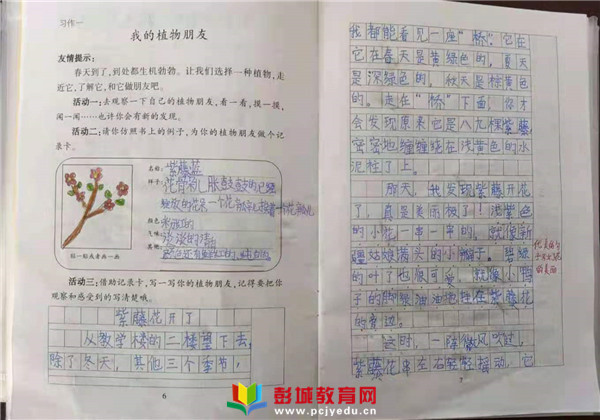 习作一
我的植物朋友
友情提示：
春天到了，到处都生机勃勃。让我们选择一种植物，走
近它，了解它，和它做朋友吧。
活动一：去观察一下自己的植物朋友，看一看，摸一摸，
闻一闻……也许你会有新的发现。
活动二：请你仿照书上的例子，为你的植物朋友做个记
录卡。
名称：紫藤花
样子：
颜色：
气味：淡淡的
其他：
贴一贴或者画一画
活动三：借助记录卡，写一写你的植物朋友，记得要把你
观察和感受到的写清楚哦。
紫藤花开了
从教学楼的二楼望下去，
除了冬天，其他三个季节，
6
我都能看见一座“桥”，它在
它在春天是黄绿色的，夏天
是深绿色的，秋天是棕黄色
的。走在“桥”下面，你才
会发现原来它是八九棵紫藤
密密地缠绕在浅黄色的水
泥柱了上。
昨天，我发现紫藤开花
了，真是美丽极了！浅紫色
的小花一串一串的，就像新
疆姑娘满头的小辫子。碧绿
的叶了也很可爱，就像小鸭
子的脚绿油油地
的旁边。
这时，一阵微风吹过，
紫藤花串左右轻轻摇动，它
7
彭城教育网
www.pcjyedu.cn